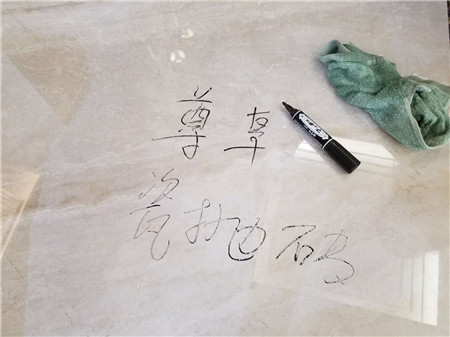 尊卓
瓷抛砖